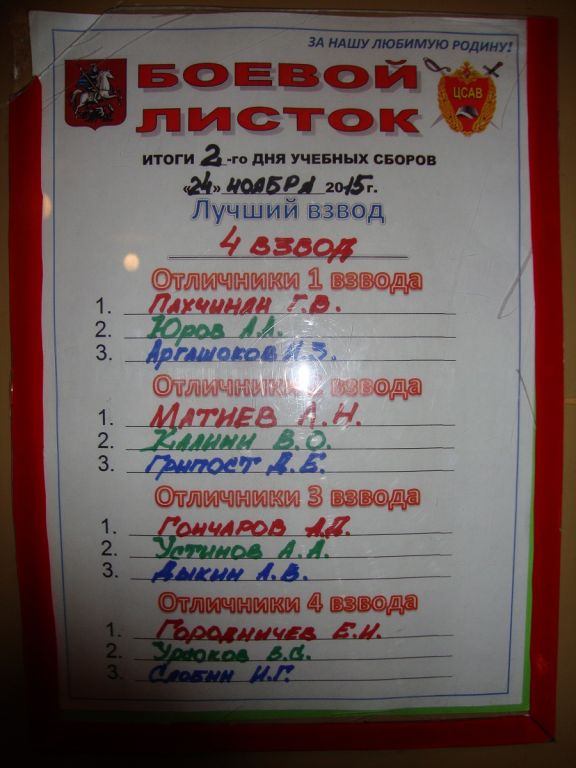 ЗА НАШУ ЛЮБИМУЮ РОДИНУ!
ЦСАВ
БОЕВОЙ
ЛИСТОК
ИТОГИ 2-ГО ДНЯ УЧЕБНЫХ СБОРОВ
«24» НОЯБРЯ 2015г.
Лучший взвод
4 ВЗВОД
Отличники 1 взвода
1. ПАХЧИНЯН Г.В.
2. ЮРОВ А.А.
3. АРГАШОКОВ И.З.
Отличники 2 взвода
1. МАТИЕВ А.Н.
2. КАЛИНИН В.О.
3. ГРИПОСТ Д.Е.
Отличники 3 взвода
1. ГОНЧАРОВ А.Д.
2. УСТИНОВ А.А.
3. ДЫКИН А.В.
Отличники 4 взвода
1. ГОРОДНИЧЕВ Е.И.
2.
3. СЛОБИН И.Г.